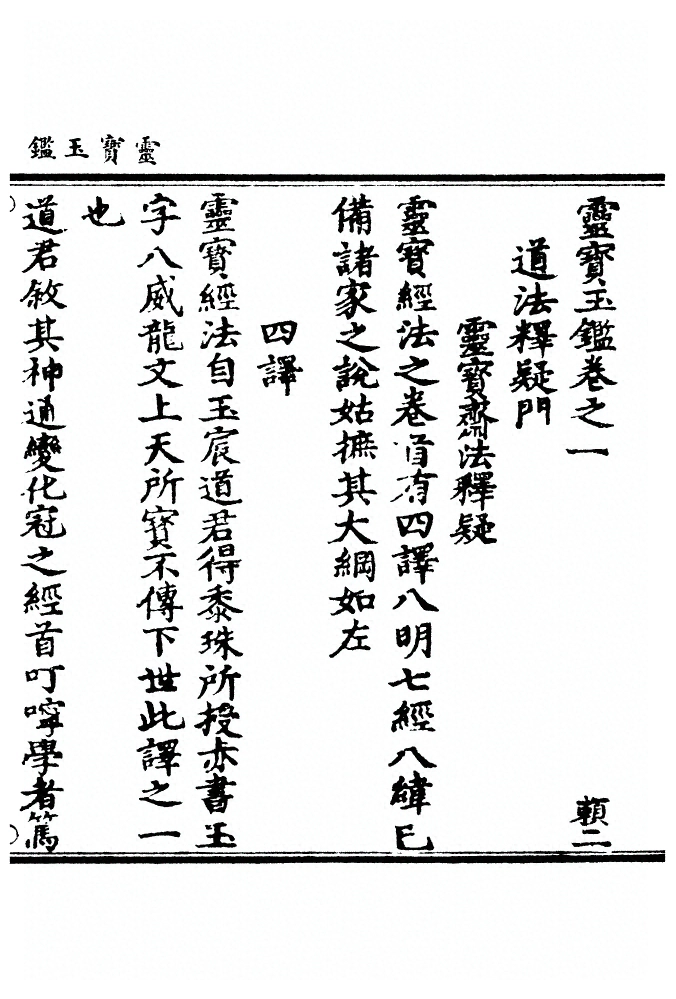 靈寶玉鑑
靈寶玉鑑卷之一
頼二
道法釋疑門
靈寶齋法釋疑
靈寶經法之卷首有四譯八明七經八緯已
備諸家之說姑摭其大綱如左
四譯
靈寶經法自玉宸道君得黍珠所授赤書玉
字八威龍文上天所寶不傳下世此譯之一
也
道君敘其神通變化冠之經首叮嚀學者篤